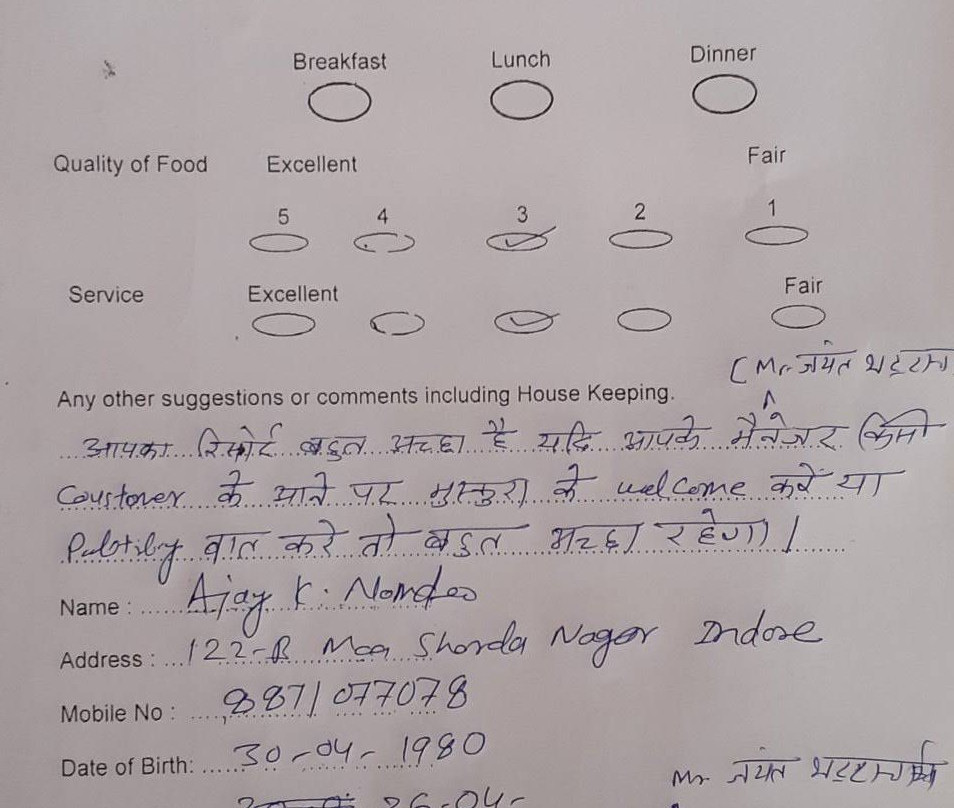 Breakfast Lunch Dinner
Quality of Food Excellent Fair
5 4 3 2 1
Service Excellent Fair
(Mr. जयंत
Any other suggestions or comments including House Keeping.
आपका रिसोर्ट बहुत अच्छा है यदि आपके मैनेजर किसी
Coustomer के आने पर मुस्कुरा के welcome करें या
बात करे तो बहुत अच्छा रहेगा।
Name : Ajay K. Namdeo
Address : 122-B Maa Sharda Nagar Indore
Mobile No : 8871077078
Date of Birth: 30-04-1980
Mr जयंत
26-04-